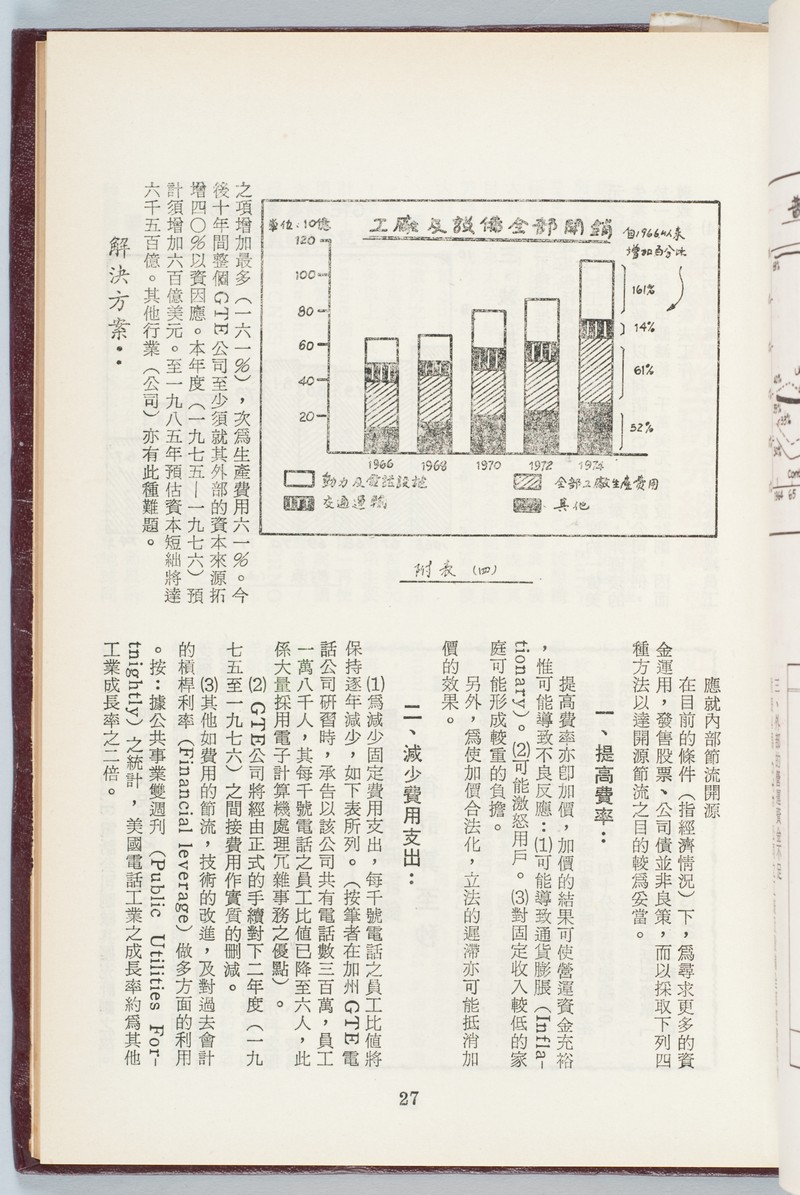 工廠及設備全部開銷
單位:10億
自1966以來
增加百分比
120
100
80
60
40
20
161%
14%
61%
52%
1966
1968
1970
1972
1974
動力及電話設施
全部工廠生產費用
交通運輸
其他
附表(四)
之項增加最多(一六一%),次爲生產費用六一%。今
後十年間整個GTE公司至少須就其外部的資本來源拓
增四○%以資因應。本年度(一九七五—一九七六)預
計須增加六百億美元。至一九八五年預估資本短絀將達
六千五百億。其他行業(公司)亦有此種難題。
解決方案:
應就內部節流開源
在目前的條件(指經濟情況)下,爲尋求更多的資
金運用,發售股票、公司債並非良策,而以採取下列四
種方法以達開源節流之目的較爲妥當。
一、提高費率:
提高費率亦卽加價,加價的結果可使營運資金充裕
,惟可能導致不良反應:⑴可能導致通貨膨脹(Infla-
tionary)。⑵可能激怒用戶。⑶對固定收入較低的家
庭可能形成較重的負擔。
另外,爲使加價合法化,立法的遲滯亦可能抵消加
價的效果。
二、減少費用支出:
⑴爲減少固定費用支出,每千號電話之員工比值將
保持逐年減少,如下表所列。(按筆者在加州GTE電
話公司研習時,承告以該公司共有電話數三百萬,員工
一萬八千人,其每千號電話之員工比值已降至六人,此
係大量採用電子計算機處理冗雜事務之優點)。
⑵ GTE公司將經由正式的手續對下二年度(一九
七五至一九七六)之間接費用作實質的刪減。
⑶其他如費用的節流,技術的改進,及對過去會計
的槓桿利率(Financial leverage)做多方面的利用
。按:據公共事業雙週刊(Public Utilities For-
tnightly)之統計,美國電話工業之成長率約爲其他
工業成長率之二倍。
27